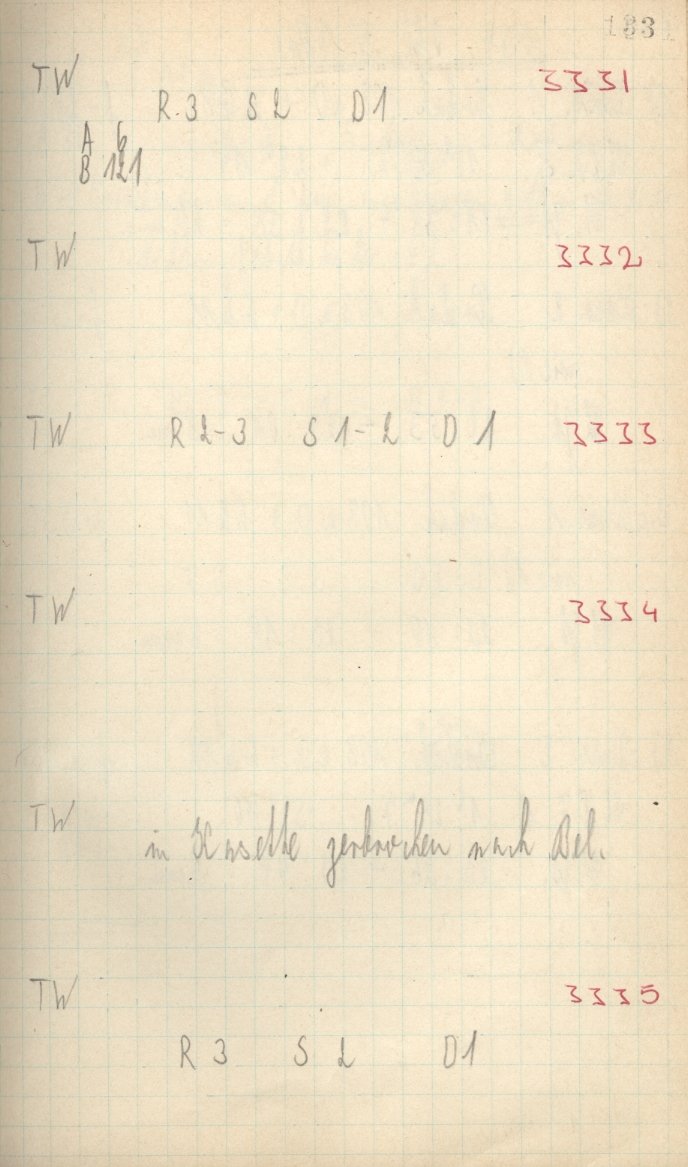 133
TW 3331
R.3 S2 D1
A 6
B 121
TW 3332
TW R 2-3 S 1-2 D 1 3333
TW 3334
TW
in Kasette zerbrochen nach Bel.
TW 3335
R 3 S 2 D1